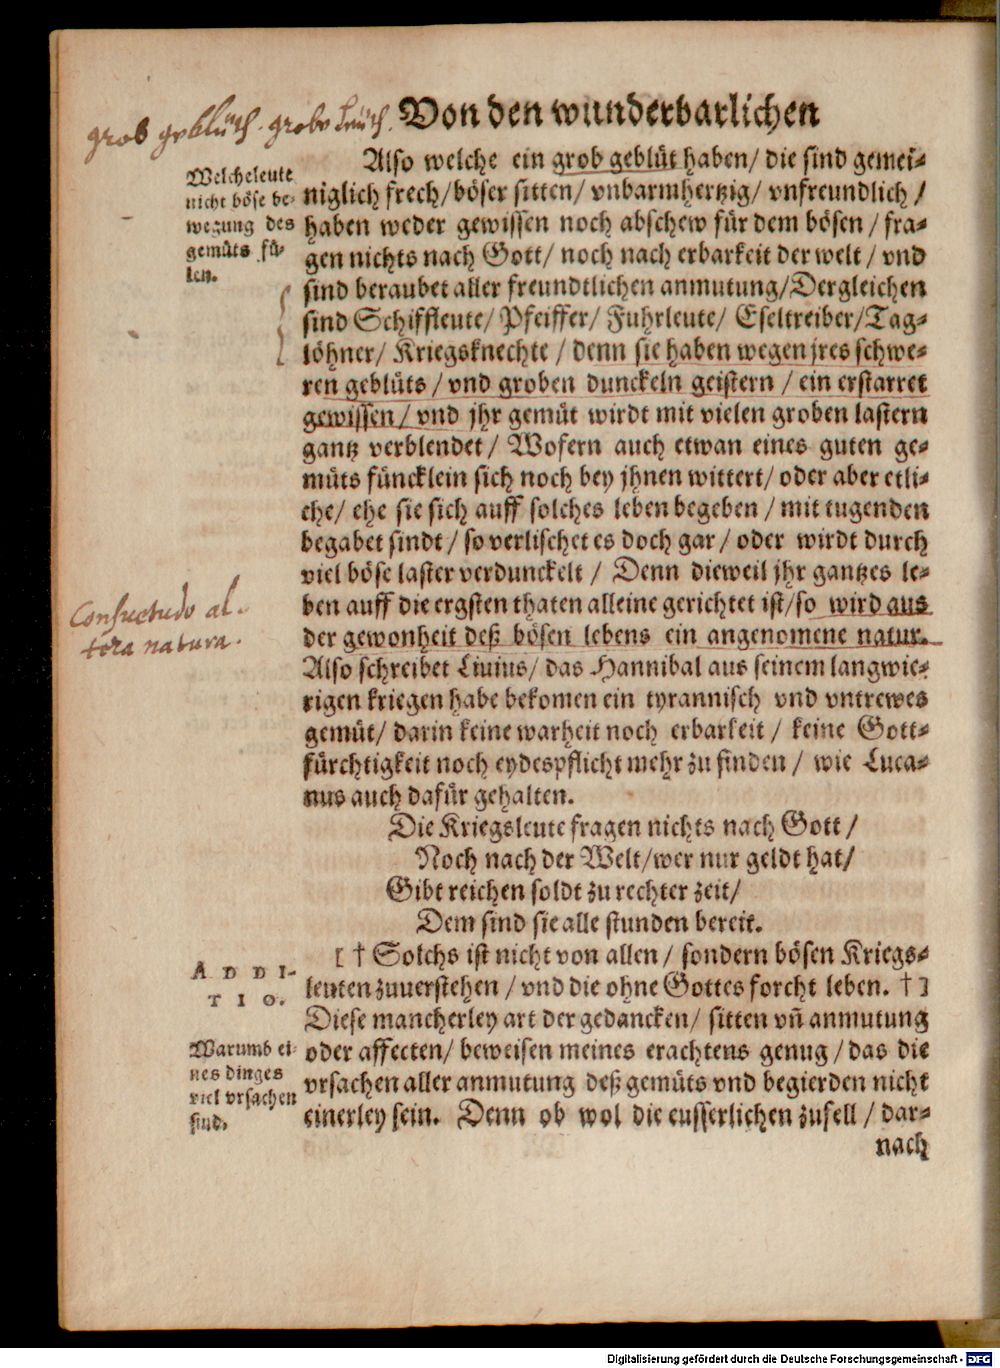 Von den wunderbarlichen
grob geblüth. grobe Leuth.
Also welche ein grob geblüt haben/ die sind gemei⸗
niglich frech/ böser sitten/ vnbarmhertzig/ vnfreundlich /
haben weder gewissen noch abschew für dem bösen / fra⸗
gen nichts nach Gott/ noch nach erbarkeit der welt / vnd
sind beraubet aller freundtlichen anmutung/ Dergleichen
sind Schiffleute/ Pfeiffer/ Fuhrleute/ Eseltreiber/ Tag⸗
löhner/ Kriegsknechte / denn sie haben wegen jres schwe⸗
ren geblüts / vnd groben dunckeln geistern / ein erstarret
gewissen / vnd jhr gemüt wirdt mit vielen groben lastern
gantz verblendet / Wofern auch etwan eines guten ge⸗
müts füncklein sich noch bey jhnen wittert/ oder aber etli⸗
che/ ehe sie sich auff solches leben begeben / mit tugenden
begabet sindt / so verlischet es doch gar / oder wirdt durch
viel böse laster verdunckelt / Denn dieweil jhr gantzes le⸗
ben auff die ergsten thaten alleine gerichtet ist/ so wird aus
der gewonheit deß bösen lebens ein angenomene natur.
Also schreibet Liuius/ das Hannibal aus seinem langwie⸗
rigen kriegen habe bekomen ein tyrannisch vnd vntrewes
gemüt/ darin keine warheit noch erbarkeit / keine Gott⸗
fürchtigkeit noch eydespflicht mehr zu finden / wie Luca⸗
nus auch dafür gehalten.
Die Kriegsleute fragen nichts nach Gott /
Noch nach der Welt/ wer nur geldt hat/
Gibt reichen soldt zu rechter zeit/
Dem sind sie alle stunden bereit.
[ † Solchs ist nicht von allen / sondern bösen Kriegs⸗
leuten zuuerstehen / vnd die ohne Gottes forcht leben. † ]
Diese mancherley art der gedancken/ sitten vn̄ anmutung
oder affecten/ beweisen meines erachtens genug / das die
vrsachen aller anmutung deß gemüts vnd begierden nicht
einerley sein. Denn ob wol die eusserlichen zufell / dar⸗
nach
Welche leute
nicht böse be⸗
wegung des
gemüts fü⸗
len.
Consuetudo al-
tera natura.
ADDI-
TIO.
Warumb ei⸗
nes dinges
viel vrsachen
sind.
Digitalisierung gefördert durch die Deutsche Forschungsgemeinschaft - DFG